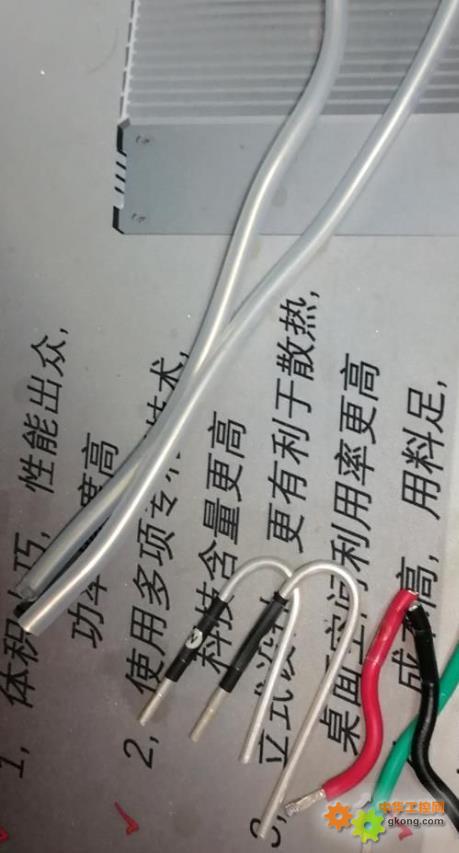 1，体积 巧，性能出众，
功率 度高
2，使用多项专 技术，
科技含量更高
3，立式设 更有利于散热，
桌面空间利用率更高
成 高，用料足，
中华工控网
gkong.com